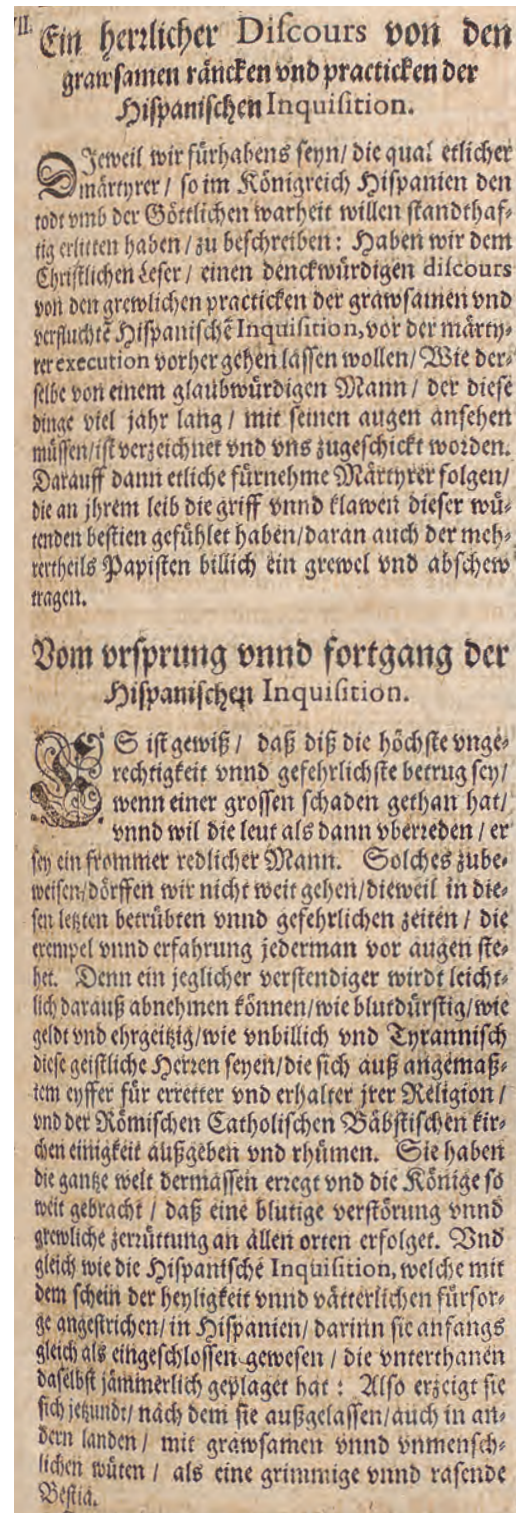 VII. Ein herrlicher Discours von den
grawsamen räncken vnd practicken der
Hispanischen Inquisition.
DIeweil wir fürhabens seyn/ die qual etlicher
märtyrer / so im Königreich Hispanien den
todt vmb der Göttlichen warheit willen standthaf-
tig erlitten haben / zu beschreiben : Haben wir dem
Christlichen Leser / einen denckwürdigen discours
von den grewlichen practicken der grawsamen vnd
verfluchtē Hispanischē Inquisition, vor der märty-
rer execution vorher gehen lassen wollen/ Wie der-
selbe von einem glaubwürdigen Mann / der diese
dinge viel jahr lang / mit seinen augen ansehen
müssen/ist verzeichnet vnd vns zugeschickt worden.
Darauff dann etliche fürnehme Märtyrer folgen/
die an jhrem leib die griff vnnd klawen dieser wü-
tenden bestien gefühlet haben/daran auch der meh-
rertheils Papisten billich ein grewel vnd abschew
tragen.
Vom vrsprung vnnd fortgang der
Hispanischen Inquisition.
ES ist gewiß / daß diß die höchste vnge-
rechtigkeit vnnd gefehrlichste betrug sey/
wenn einer grossen schaden gethan hat/
vnnd wil die leut als dann vberreden / er
sey ein frommer redlicher Mann. Solches zube-
weisen/dörffen wir nicht weit gehen/dieweil in die-
sen letzten betrübten vnnd gefehrlichen zeiten / die
exempel vnnd erfahrung jederman vor augen ste-
het. Denn ein jeglicher verstendiger wirdt leicht-
lich darauß abnehmen können/wie blutdürstig/wie
geldt vnd ehrgeitzig/wie vnbillich vnd Tyrannisch
diese geistliche Herren seyen/die sich auß angemaß-
tem eyffer für erretter vnd erhalter jrer Religion /
vnd der Römischen Catholischen Bäbstischen kir-
chen einigkeit außgeben vnd rhümen. Sie haben
die gantze welt dermassen erregt vnd die Könige so
weit gebracht / daß eine blutige verstörung vnnd
grewliche zerrüttung an allen orten erfolget. Vnd
gleich wie die Hispanische Inquisition, welche mit
dem schein der heyligkeit vnnd vätterlichen fürsor-
ge angestrichen/ in Hispanien/ darinn sie anfangs
gleich als eingeschlossen gewesen / die vnterthanen
daselbst jämmerlich geplaget hat : Also erzeigt sie
sich jetzundt/ nach dem sie außgelassen/auch in an-
dern landen / mit grawsamen vnnd vnmensch-
lichen wüten / als eine grimmige vnnd rasende
Bestia.